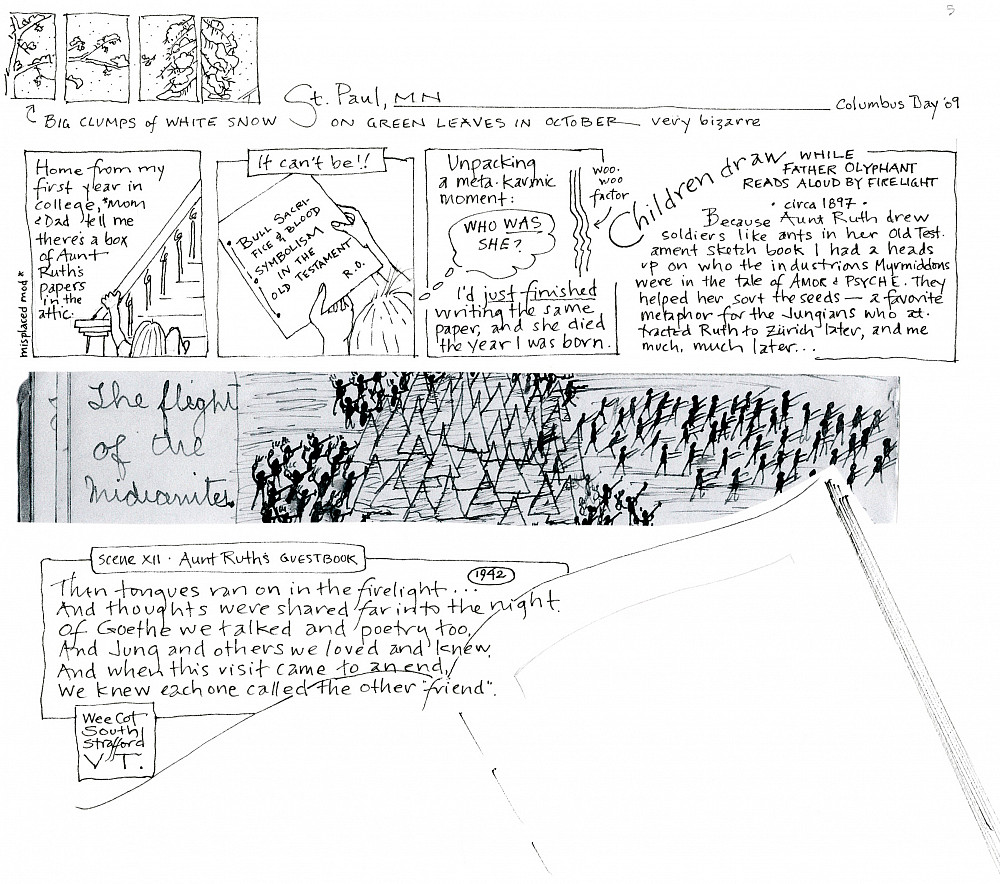 5
St. Paul, MN Columbus Day '09
BIG CLUMPS of WHITE SNOW ON GREEN LEAVES IN OCTOBER very bizarre
Home from my
first year in
college,* Mom
& Dad tell me
there's a box
of Aunt
Ruth's
papers
in the
attic.
misplaced mod *
It can't be!!
BULL SACRI-
FICE & BLOOD
SYMBOLISM
IN THE
OLD TESTAMENT
R.O.
Unpacking
a meta-karmic
moment:
WHO WAS
SHE?
I'd just finished
writing the same
paper, and she died
the year I was born.
woo-
woo
factor
Children draw WHILE
FATHER OLYPHANT
READS ALOUD BY FIRELIGHT
• circa 1897 •
Because Aunt Ruth drew
soldiers like ants in her Old Test-
ament sketch book I had a heads
up on who the industrious Myrmidons
were in the tale of AMOR & PSYCHE. They
helped her sort the seeds — a favorite
metaphor for the Jungians who at-
tracted Ruth to Zürich later, and me
much, much later...
The flight
of the
Midianites.
Scene XII • Aunt Ruth's GUESTBOOK
1942
Then tongues ran on in the firelight...
And thoughts were shared far into the night.
Of Goethe we talked and poetry too,
And Jung and others we loved and knew.
And when this visit came to an end,
We knew each one called the other "friend".
Wee Cot
South
Strafford
VT.